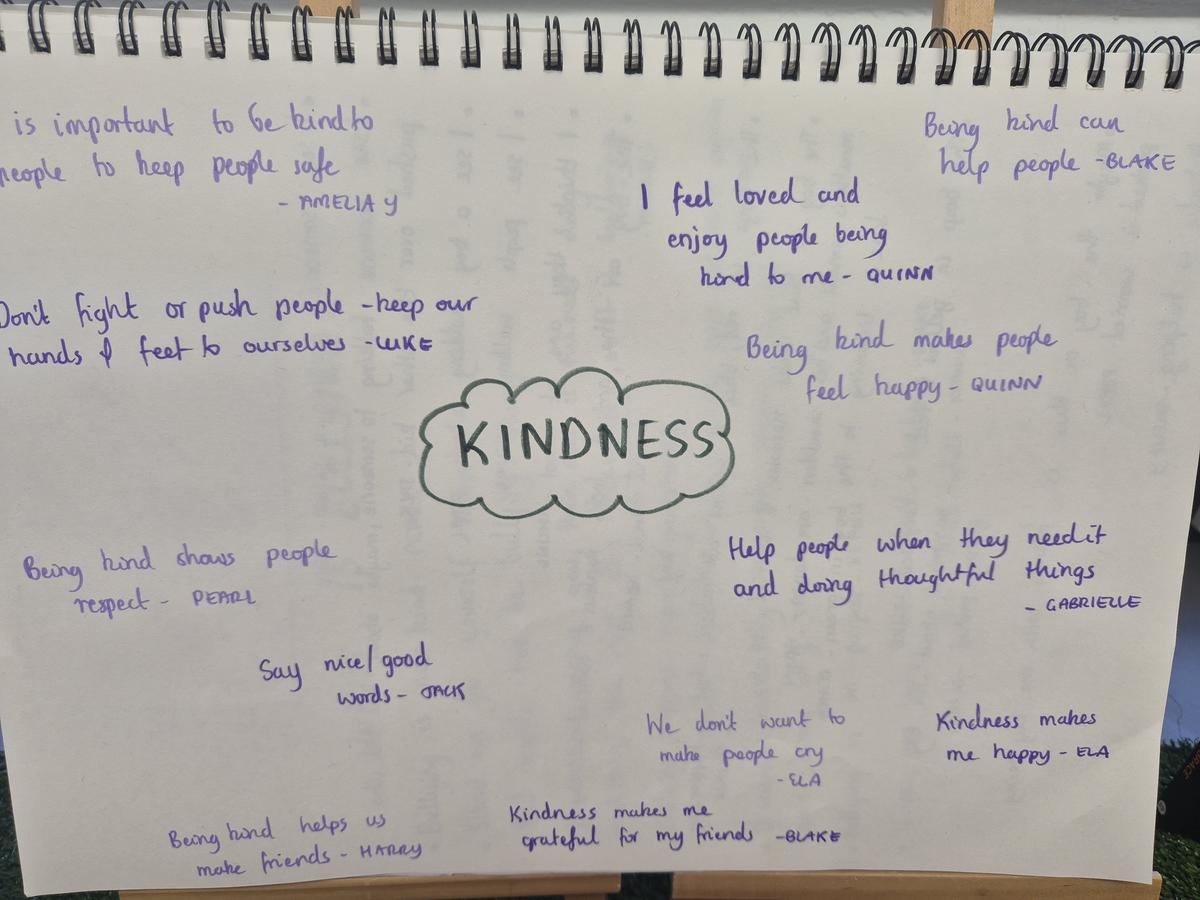 is important to be kind to
people to keep people safe
- AMELIA Y
Being kind can
help people - BLAKE
I feel loved and
enjoy people being
kind to me - QUINN
Don't fight or push people - keep our
hands & feet to ourselves - LUKE
Being kind makes people
feel happy - QUINN
KINDNESS
Being kind shows people
respect - PEARL
Help people when they need it
and doing thoughtful things
- GABRIELLE
Say nice/good
words - JACK
We don't want to
make people cry
- ELA
Kindness makes
me happy - ELA
Being kind helps us
make friends - HARRY
Kindness makes me
grateful for my friends - BLAKE